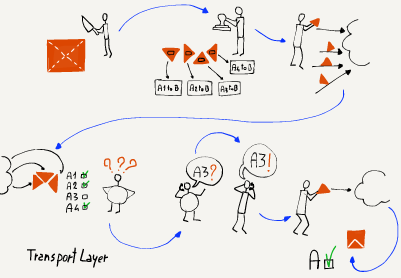 A4toB
A1toB
A2toB
A3toB
???
A1
A2
A3
A4
A3?
A3!
A
Transport Layer